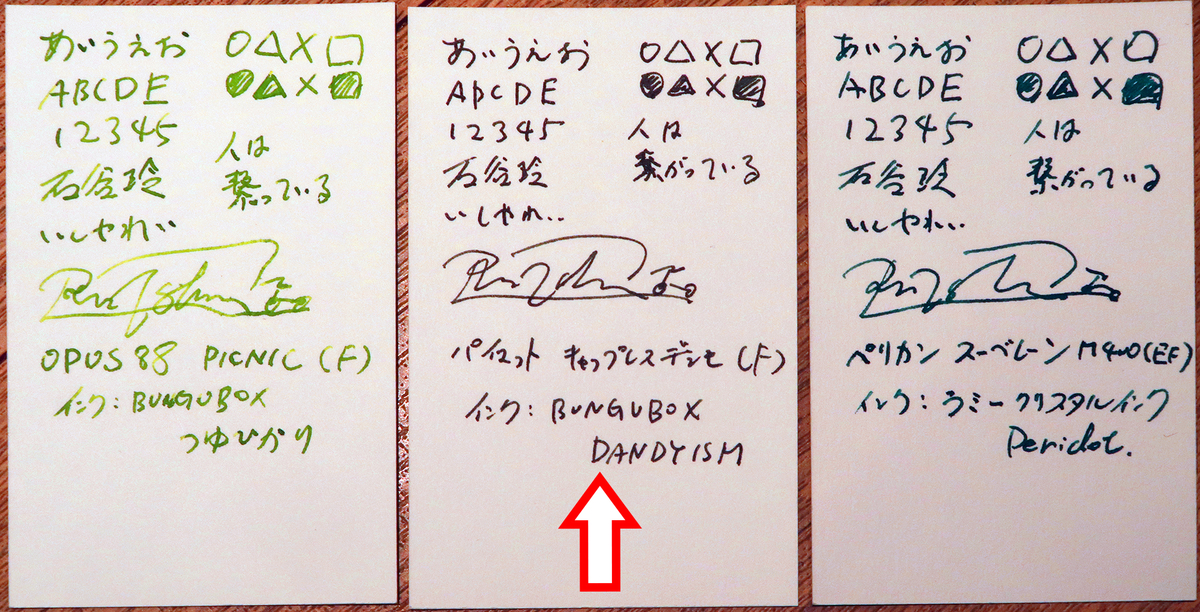 あいうえお ○△×□
ABCDE ●▲×■
12345
人は
石谷玲
繋っている
いしやれい
OPUS 88 PICNIC (F)
インク: BUNGUBOX
つゆひかり
あいうえお ○△×□
ABCDE ●▲×■
12345
人は
石谷玲
繋がっている
いしやれい
パイロット キャップレスデシモ (F)
インク: BUNGUBOX
DANDYISM
あいうえお ○△×□
ABCDE ●▲×■
12345
人は
石谷玲
繋がっている
いしやれい
ペリカン スーベレーン M400(EF)
インク: ラミークリスタルインク
Peridot.